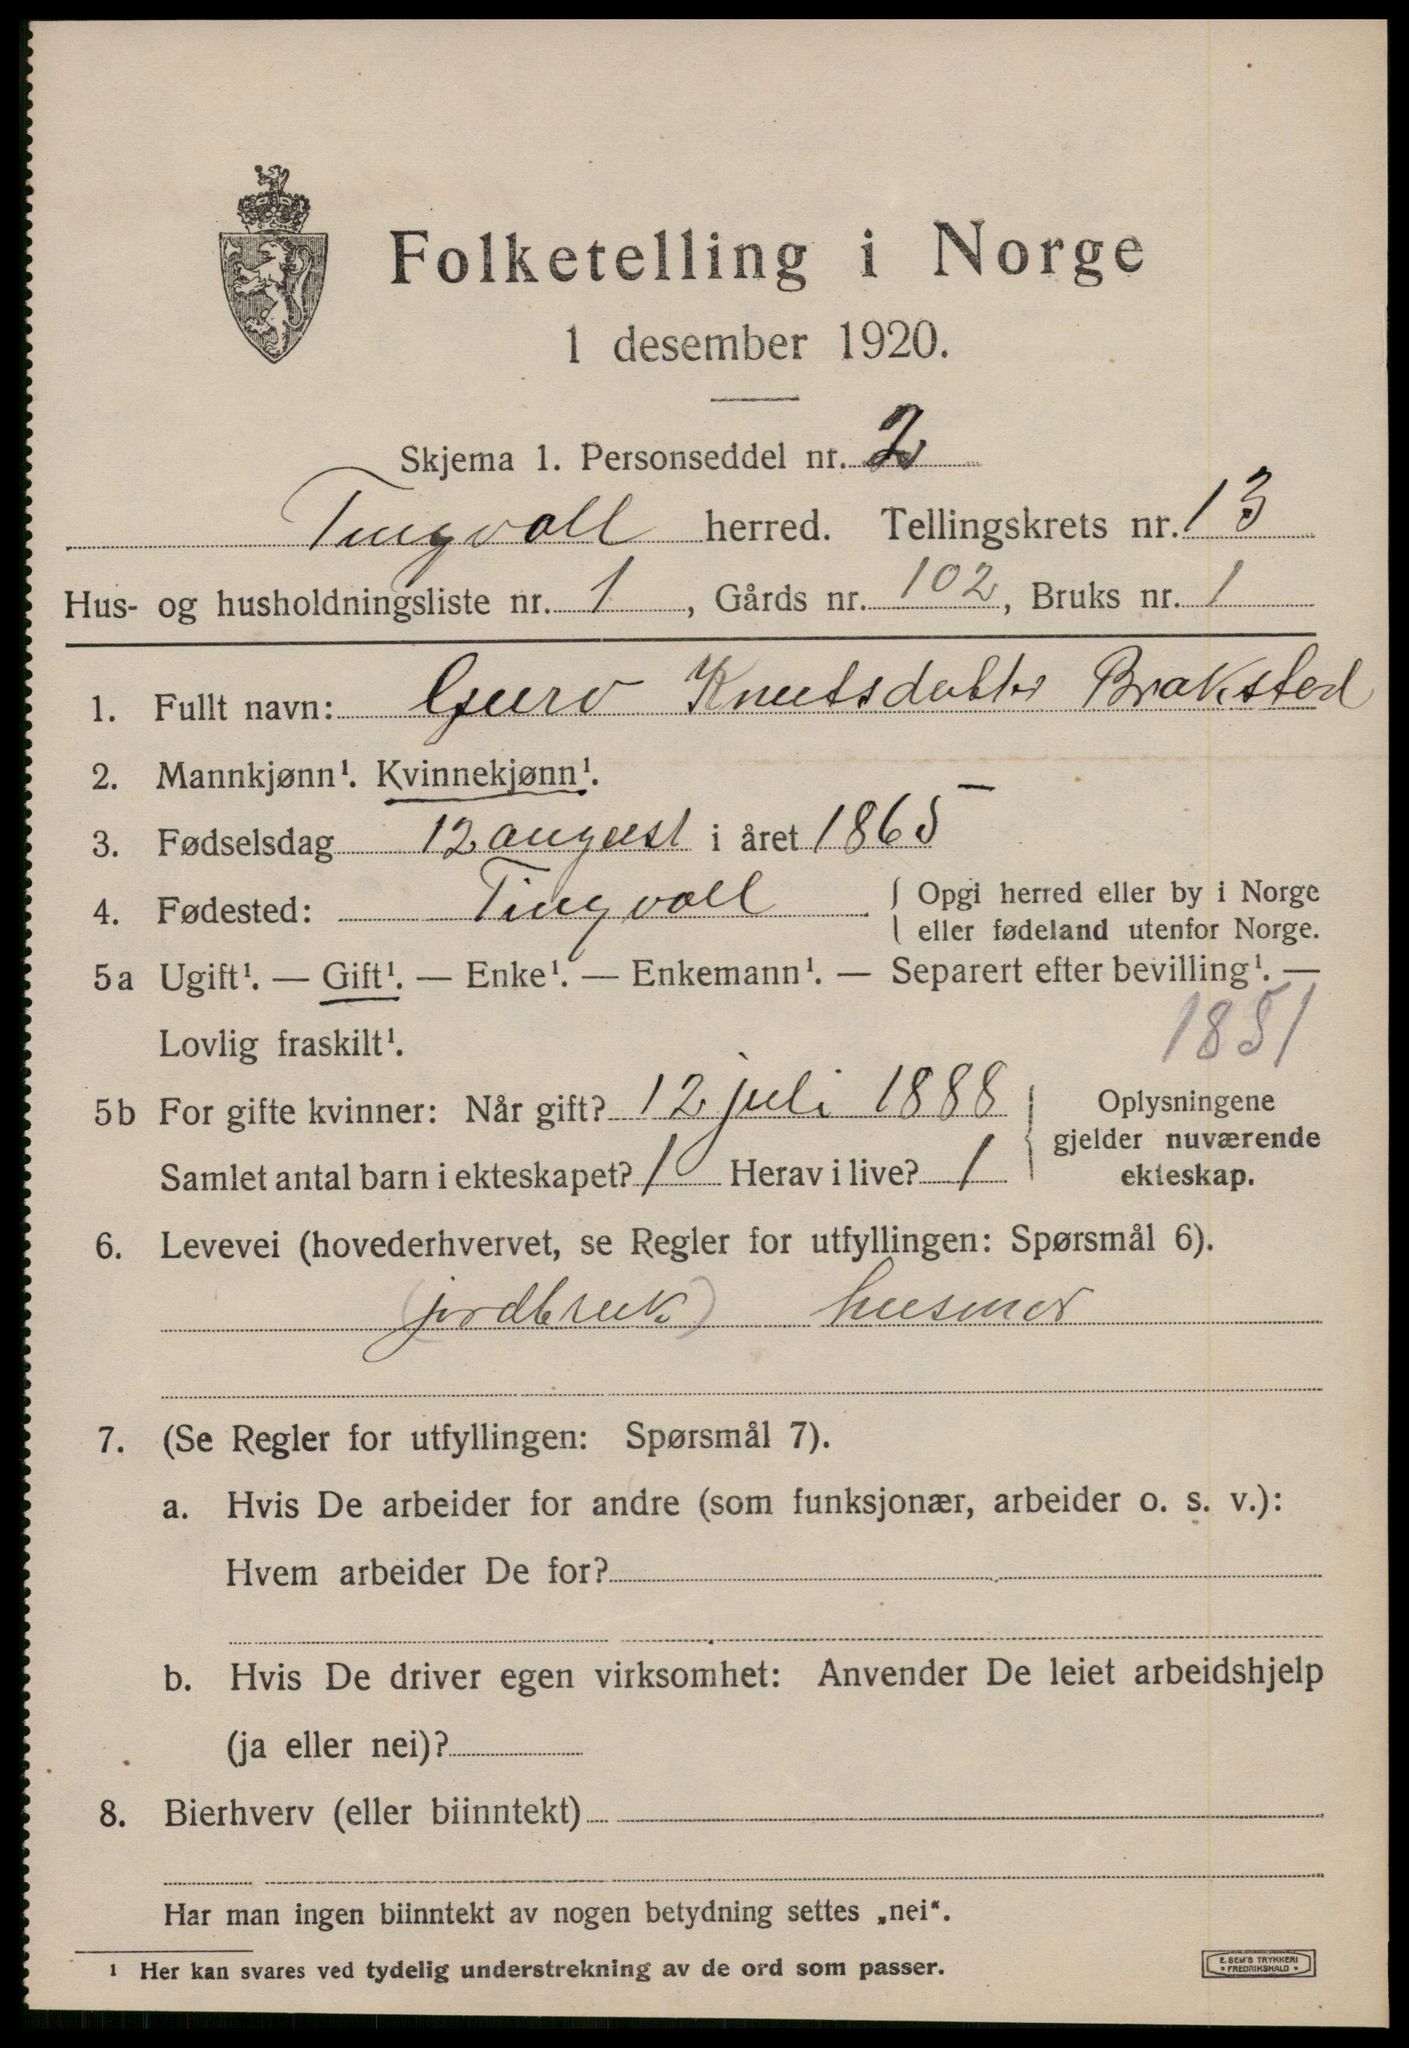 Folketelling i Norge
1 desember 1920.
Skjema 1. Personseddel nr. 2
Tingvoll herred. Tellingskrets nr. 13
Hus- og husholdningsliste nr. 1, Gårds nr. 102, Bruks nr. 1
1. Fullt navn: Guro Knutsdatter Braksted
2. Mannkjønn¹. Kvinnekjønn¹.
3. Fødselsdag 12 august i året 1865
4. Fødested: Tingvoll { Opgi herred eller by i Norge
eller fødeland utenfor Norge.
5a Ugift¹. — Gift¹. — Enke¹. — Enkemann¹. — Separert efter bevilling¹. —
Lovlig fraskilt¹. 1851
5b For gifte kvinner: Når gift? 12 juli 1888 } Oplysningene
gjelder nuværende
Samlet antal barn i ekteskapet? 1 Herav i live? 1 ekteskap.
6. Levevei (hovederhvervet, se Regler for utfyllingen: Spørsmål 6).
(jordbruk) husmor
7. (Se Regler for utfyllingen: Spørsmål 7).
a. Hvis De arbeider for andre (som funksjonær, arbeider o. s. v.):
Hvem arbeider De for?
b. Hvis De driver egen virksomhet: Anvender De leiet arbeidshjelp
(ja eller nei)?
8. Bierhverv (eller biinntekt)
Har man ingen biinntekt av nogen betydning settes „nei“.
¹ Her kan svares ved tydelig understrekning av de ord som passer.
E. SEM'S TRYKKERI
* FREDRIKSHALD *